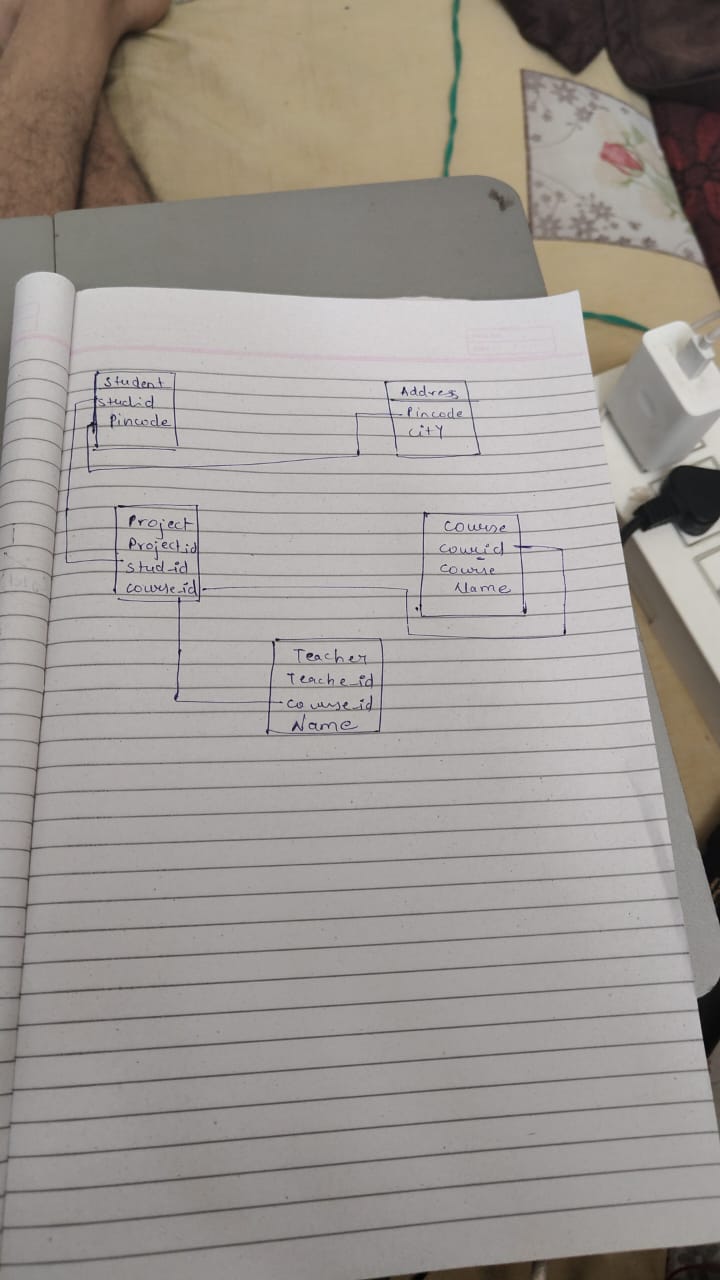 Student
Studid
Pincode
Address
Pincode
City
Project
Project_id
Stud_id
course_id
Course
Courid
Course
Name
Teacher
Teache_id
Course_id
Name